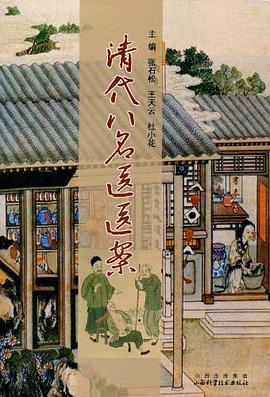 清代八名医医案
主编 张石松 王天云 杜小花
山西出版集团
山西科学技术出版社